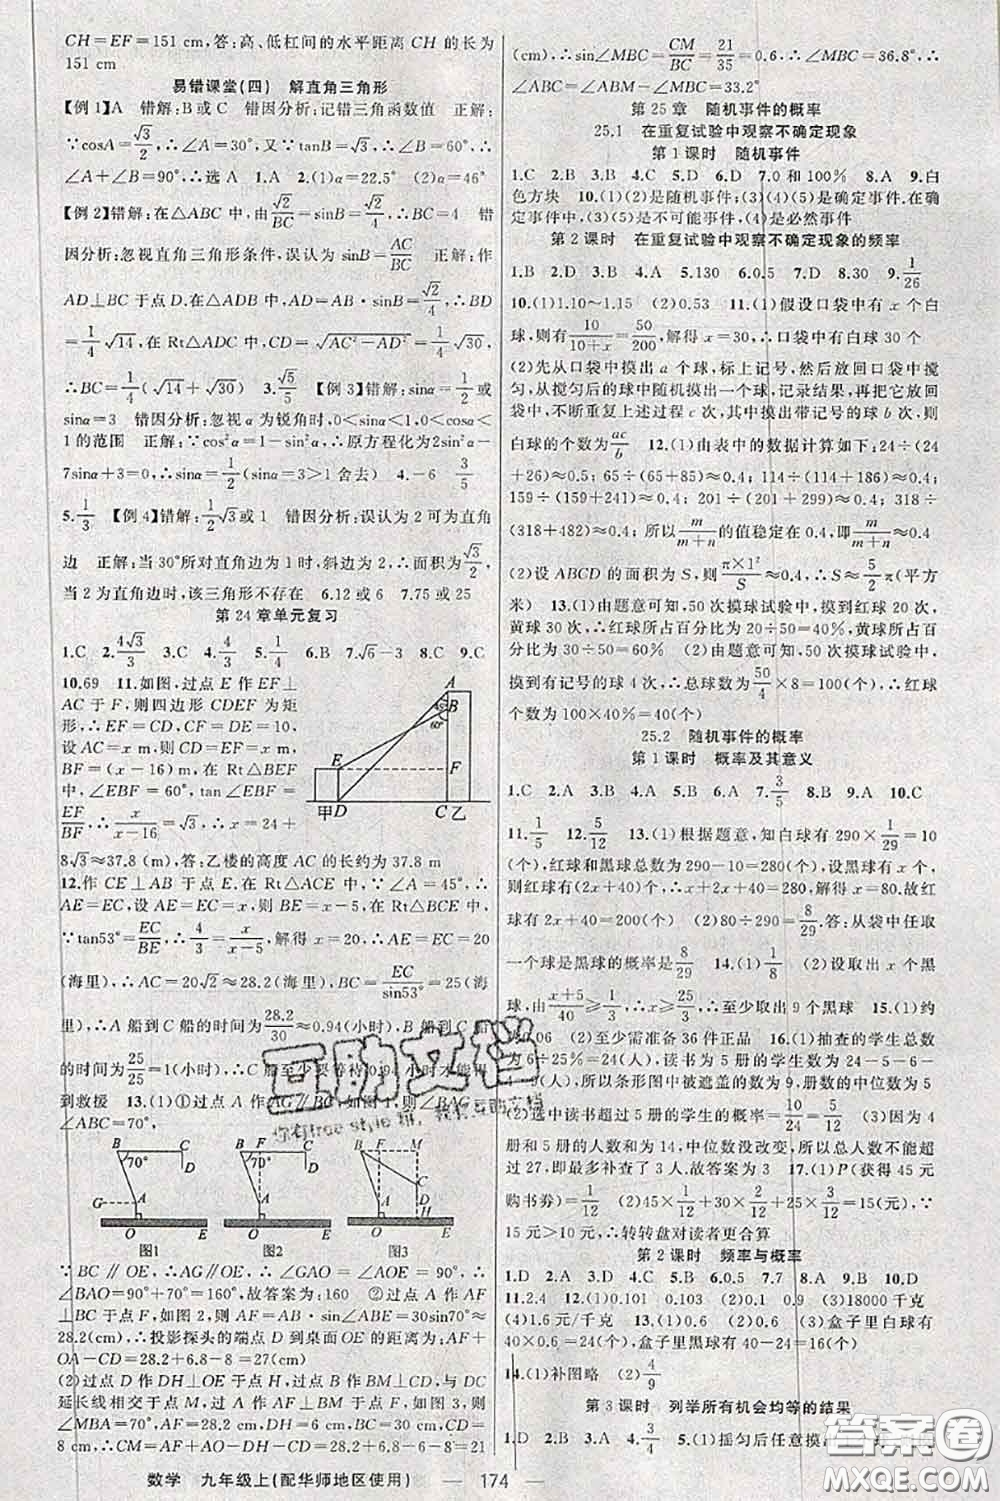 CH=EF=151 cm,答:高、低杠间的水平距离 CH 的长为
151 cm
易错课堂(四) 解直角三角形
【例 1】A 错解:B或C 错因分析:记错三角函数值 正解:
∵cosA=√3/2,∴∠A=30°,又∵tanB=√3,∴∠B=60°,∴∠A
+∠B=90°,∴选 A 1.A 2.(1)α=22.5° (2)α=46°
【例 2】错解:在△ABC 中,由√2/BC=√2/4,∴BC=4 错
因分析:忽视直角三角形条件,误认为 sinB=AC/BC 正解:作
AD⊥BC 于点 D,在△ADB 中,AD=AB·sinB=√2/4,∴BD
=1/4√14,在 Rt△ADC 中,CD=√(AC²-AD²)=1/4√30,
∴BC=1/4(√14+√30) 3.√5/5 【例 3】错解:sinα=1/2或
sinα=3 错因分析:忽视 α 为锐角时,0<sinα<1,0<cosα<
1 的范围 正解:∵cos²α=1-sin²α,∴原方程化为2sin²α-
7sinα+3=0,∴sinα=1/2(sinα=3>1 舍去) 4.-6 3/5
5.1/3 【例 4】错解:1/2√3或 1 错因分析:误认为 2 可为直角
边 正解:当 30°所对直角边为 1 时,斜边为 2,∴面积为√3/2,
当 2 为直角边时,该三角形不存在 6.12 或 6 7.75 或 25
第 24 章单元复习
1.C 2.4√3/3 3.C 4.4/3 5.1/3 6.B 7.√6-3 8.C 9.C
10.69 11.如图,过点 E 作 EF⊥
AC 于 F,则四边形 CDEF 为矩
形,∴EF=CD,CF=DE=10,
设 AC=x m,则 CD=EF=x m,
BF=(x-16)m,在 Rt△BEF
中,∠EBF=60°,tan∠EBF=
EF/BF,∴x/(x-16)=√3,∴x=24+
A
45°
B
60°
E
F
甲 D
C 乙
8√3≈37.8 (m),答:乙楼的高度 AC 的长约为 37.8 m
12.作 CE⊥AB 于点 E,在 Rt△ACE 中,∵∠A=45°,∴
AE=EC,设 AE=EC=x,则 BE=x-5,在 Rt△BCE 中,
∵tan53°=EC/BE,∴4/3=x/(x-5),解得 x=20,∴AE=EC=20
(海里),∴AC=20√2≈28.2(海里),BC=EC/sin53°=25
(海里),∴A 船到 C 船的时间为28.2/30≈0.94(小时),B 船到 C 船
的时间为25/25=1(小时),∴C 船至少要等待0.94小时才能得
到救援 13.(1)①过点 A 作AG∥BC,如图1,则∠BAG=
∠ABC=70°,
B C 70° D G A O E
B F C 70° D A O E
B F M C D A O H E
图1 图2 图3
∵BC∥OE,∴AG∥OE,∴∠GAO=∠AOE=90°,∴
∠BAO=90°+70°=160°,故答案为:160 ②过点 A 作
AF⊥BC 于点 F,如图 2,则 AF=AB·sin∠ABC=30sin70°≈
28.2(cm),∴投影探头的端点 D 到桌面 OE 的距离为:AF+
OA-CD=28.2+6.8-8=27(cm)
(2)过点 D 作 DH⊥OE 于点 H,过点 B 作 BM⊥CD,与 DC
延长线相交于点 M,过 A 作 AF⊥BM 于点 F,如图 3,则
∠MBA=70°,AF=28.2 cm,DH=6 cm,BC=35 cm,CD=
8 cm,∴CM=AF+AO-DH-CD=28.2+6.8-6-8=21
(cm),∴sin∠MBC=CM/BC=21/35=0.6,∴∠MBC=36.8°,∴
∠ABC=∠ABM-∠MBC=33.2°
第 25 章 随机事件的概率
25.1 在重复试验中观察不确定现象
第 1 课时 随机事件
1.C 2.B 3.B 4.C 5.D 6.D 7.0 和 100% 8.A 9.白
色方块 10.(1)(2)是随机事件;(3)(4)(5)是确定事件,在确
定事件中,(3)(5)是不可能事件,(4)是必然事件
第 2 课时 在重复试验中观察不确定现象的频率
1.B 2.D 3.B 4.A 5.130 6.0.5 7.D 8.30 9.1/26
10.(1)1.10~1.15 (2)0.53 11.(1)假设口袋中有 x 个白
球,则有10/(10+x)=50/200,解得 x=30,∴口袋中有白球 30 个
(2)先从口袋中摸出 a 个球,标上记号,然后放回口袋中搅
匀,从搅匀后的球中随机摸出一个球,记录结果,再把它放回
袋中,不断重复上述过程 c 次,其中摸出带记号的球 b 次,则
白球的个数为ac/b 12.(1)由表中的数据计算如下:24÷(24
+26)≈0.5;65÷(65+85)≈0.4;114÷(114+186)≈0.4;
159÷(159+241)≈0.4;201÷(201+299)≈0.4;318÷
(318+482)≈0.4;所以m/(m+n)的值稳定在 0.4,即m/(m+n)≈0.4
(2)设 ABCD 的面积为 S,则π×1²/S≈0.4,∴S≈5/2π(平方
米) 13.(1)由题意可知,50 次摸球试验中,摸到红球 20 次,
黄球 30 次,∴红球所占百分比为 20÷50=40%,黄球所占百
分比为 30÷50=60% (2)由题意可知,50 次摸球试验中,
摸到有记号的球 4 次,∴总球数为50/4×8=100(个),∴红球
个数为 100×40%=40(个)
25.2 随机事件的概率
第 1 课时 概率及其意义
1.C 2.C 3.C 4.A 5.B 6.A 7.3/5 8.A 9.A 10.C
11.1/5 12.5/12 13.(1)根据题意,知白球为 290×1/29=10
(个),红球和黑球总数为 290-10=280(个),设黑球有 x 个,
则红球有(2x+40)个,∴x+2x+40=280,解得 x=80.故红
球有 2x+40=200(个) (2)80÷290=8/29.答:从袋中任取
一个球是黑球的概率是8/29 14.(1)1/8 (2)设取出 x 个黑
球,由(x+5)/40≥1/3,∴x≥25/3,∴至少取出 9 个黑球 15.(1)约
0.06 (2)至少需准备 36 件正品 16.(1)抽查的学生总数
为6÷25%=24(人),读书为 5 册的学生数为 24-5-6-
4=9(人),所以条形图中被遮盖的数为 9,册数的中位数为 5
(2)选中读书超过 5 册的学生的概率为10/24=5/12 (3)因为 4
册和 5 册的人数和为 14,中位数没改变,所以总人数不能超
过 27,即最多补查了 3 人.故答案为 3 17.(1)P(获得 45 元
购书券)=1/12 (2)45×1/12+30×2/12+25×3/12=15(元),∵
15 元>10 元,∴转转盘对读者更合算
第 2 课时 频率与概率
1.D 2.A 3.C 4.B 5.C 6.0.5 7.7 8.B 9.B 10.D
11.2.4 12.(1)0.1 0.2 (2)0.1 0.9 (3)18000 千克
(4)1.6 元/千克 13.(1)0.6 0.6 (2)∵盒子里白球有
40×0.6=24(个),∴盒子里黑球有 40-24=16(个)
14.(1)补图略 (2)4/9
第 3 课时 列举所有机会均等的结果
1.D 2.B 3.A 4.3/4 5.(1)摇匀后任意摸
互助文档
你有free style 群,我有互助文档
答案圈
MXQE.COM
数学 九年级上(配华师地区使用) — 174 —